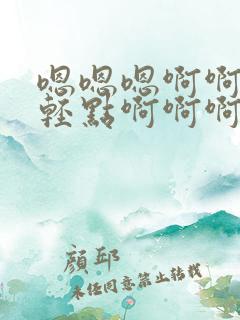 嗯嗯嗯啊啊
輕點啊啊啊
顏邱
未经同意禁止转载